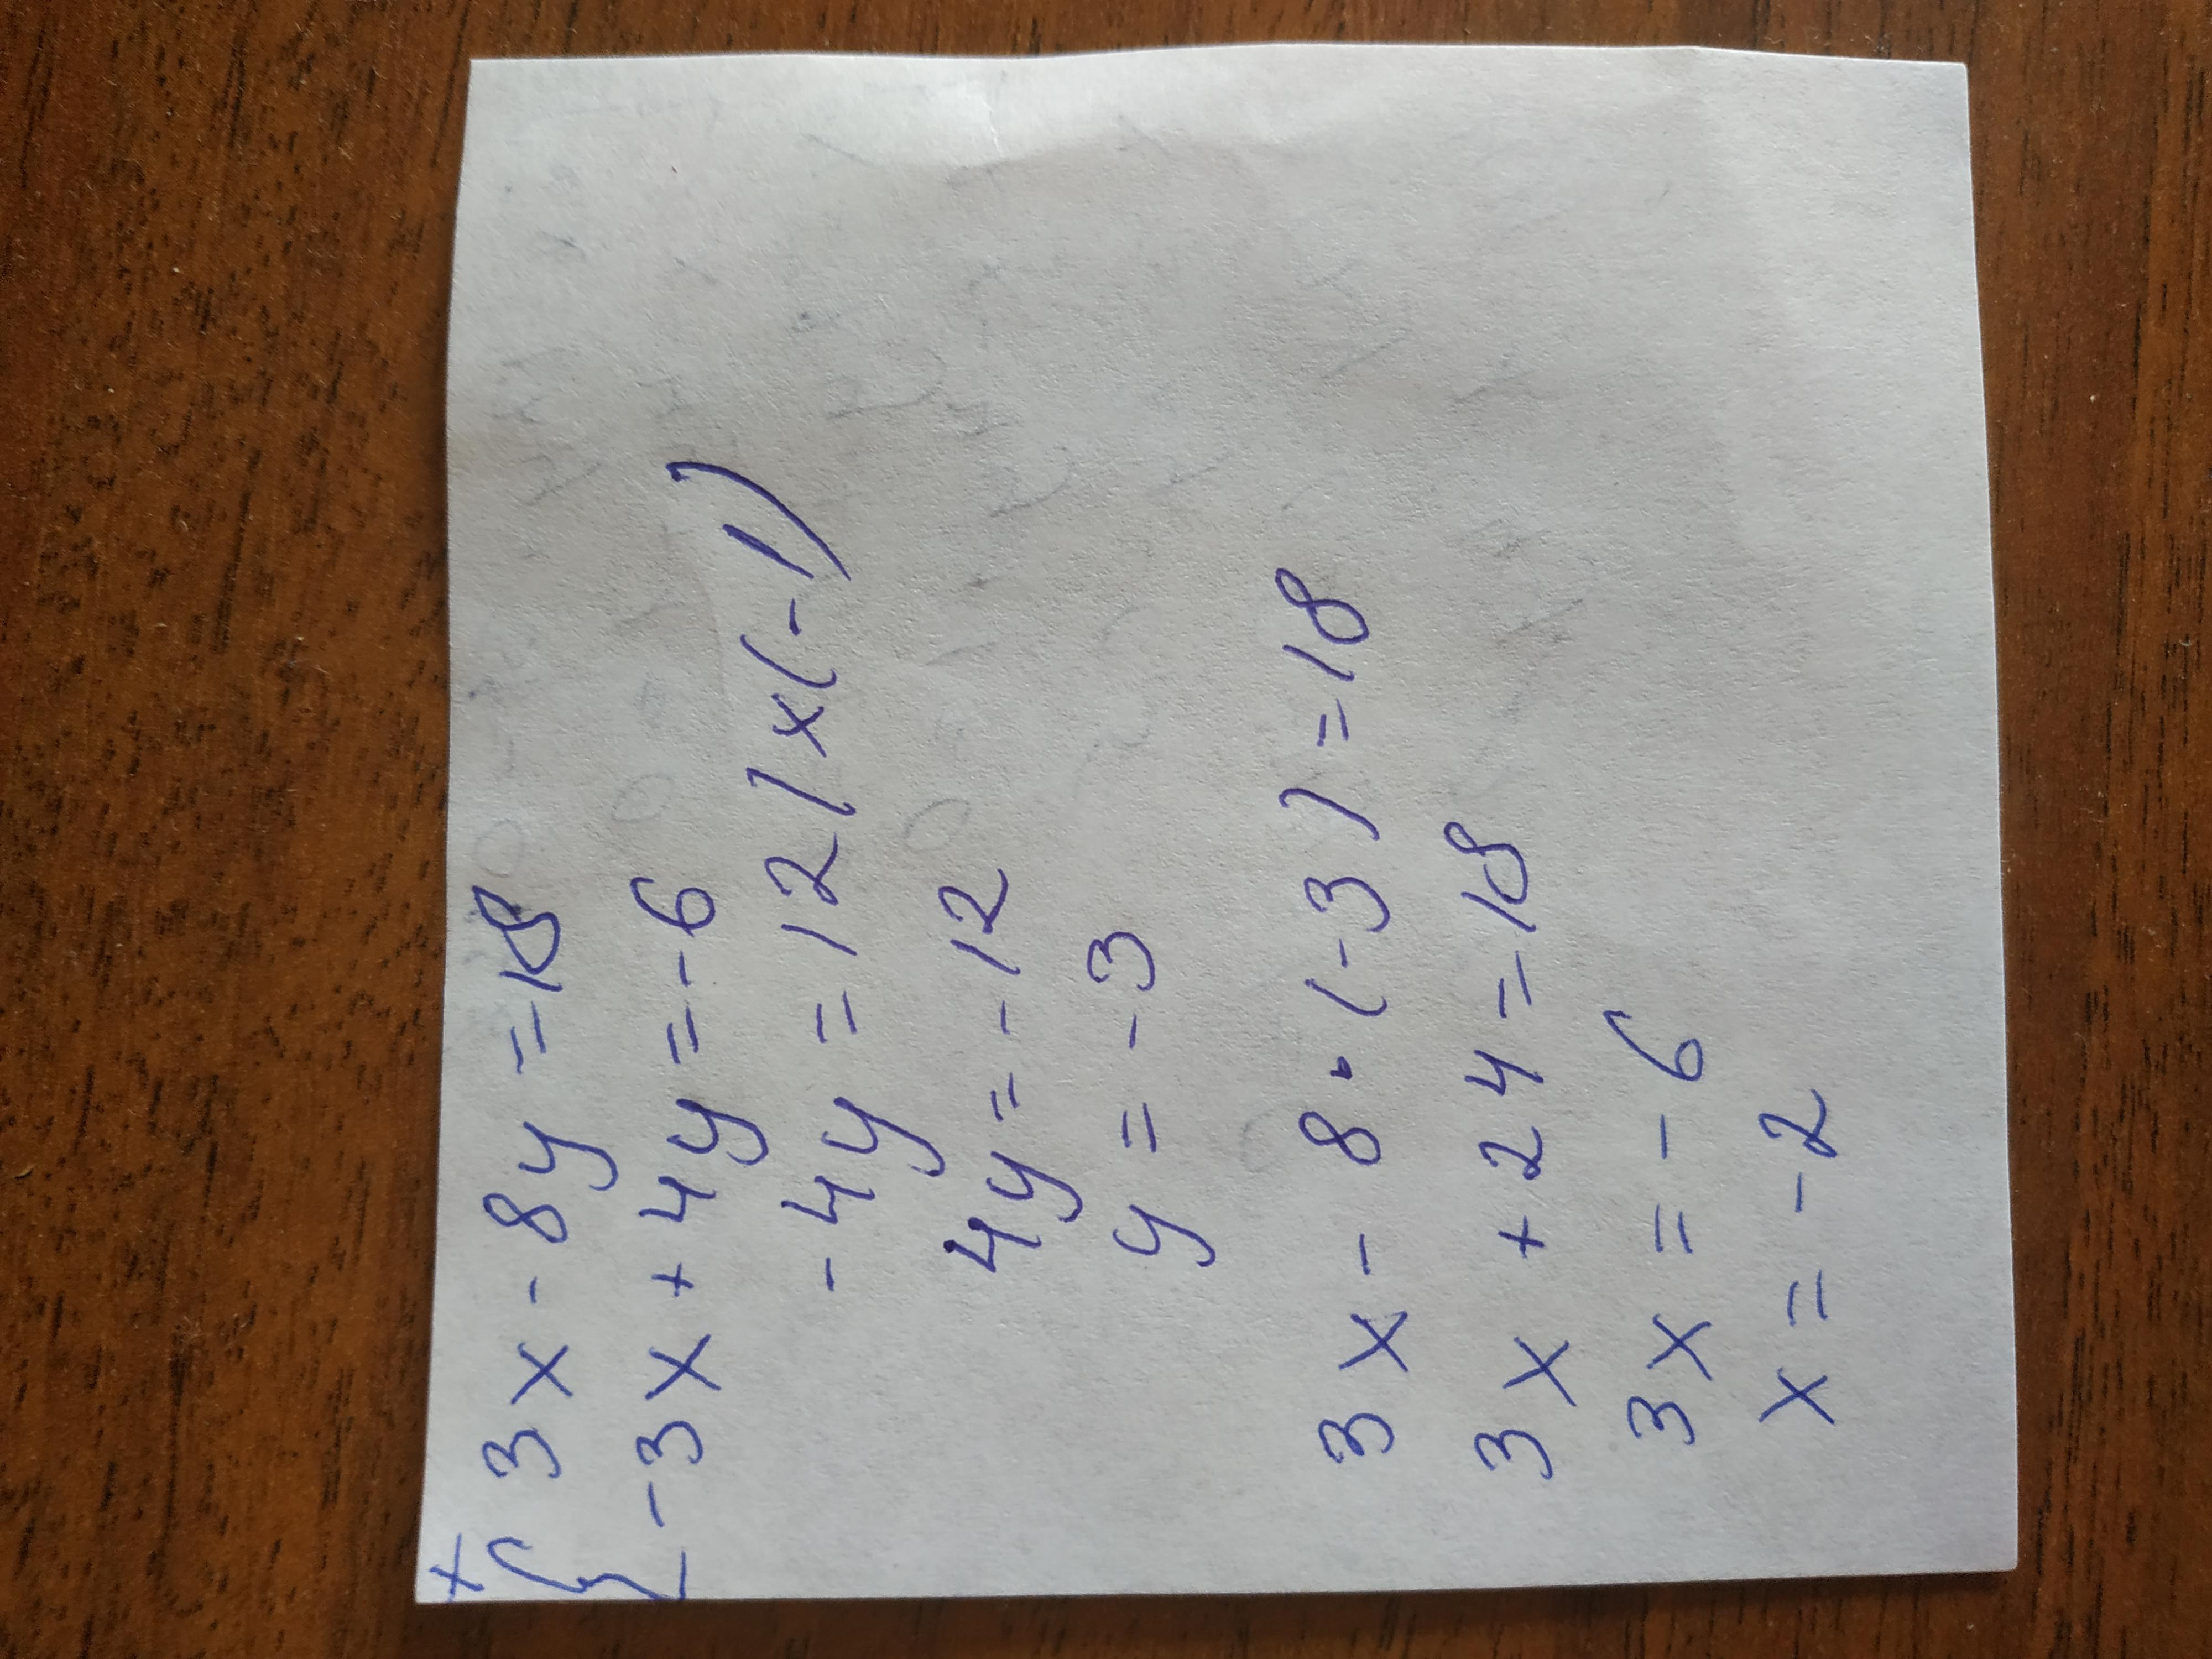 +
{ 3x - 8y = 18
-3x + 4y = -6
-4y = 12 / x(-1)
4y = -12
y = -3
3x - 8 · (-3) = 18
3x + 24 = 18
3x = -6
x = -2